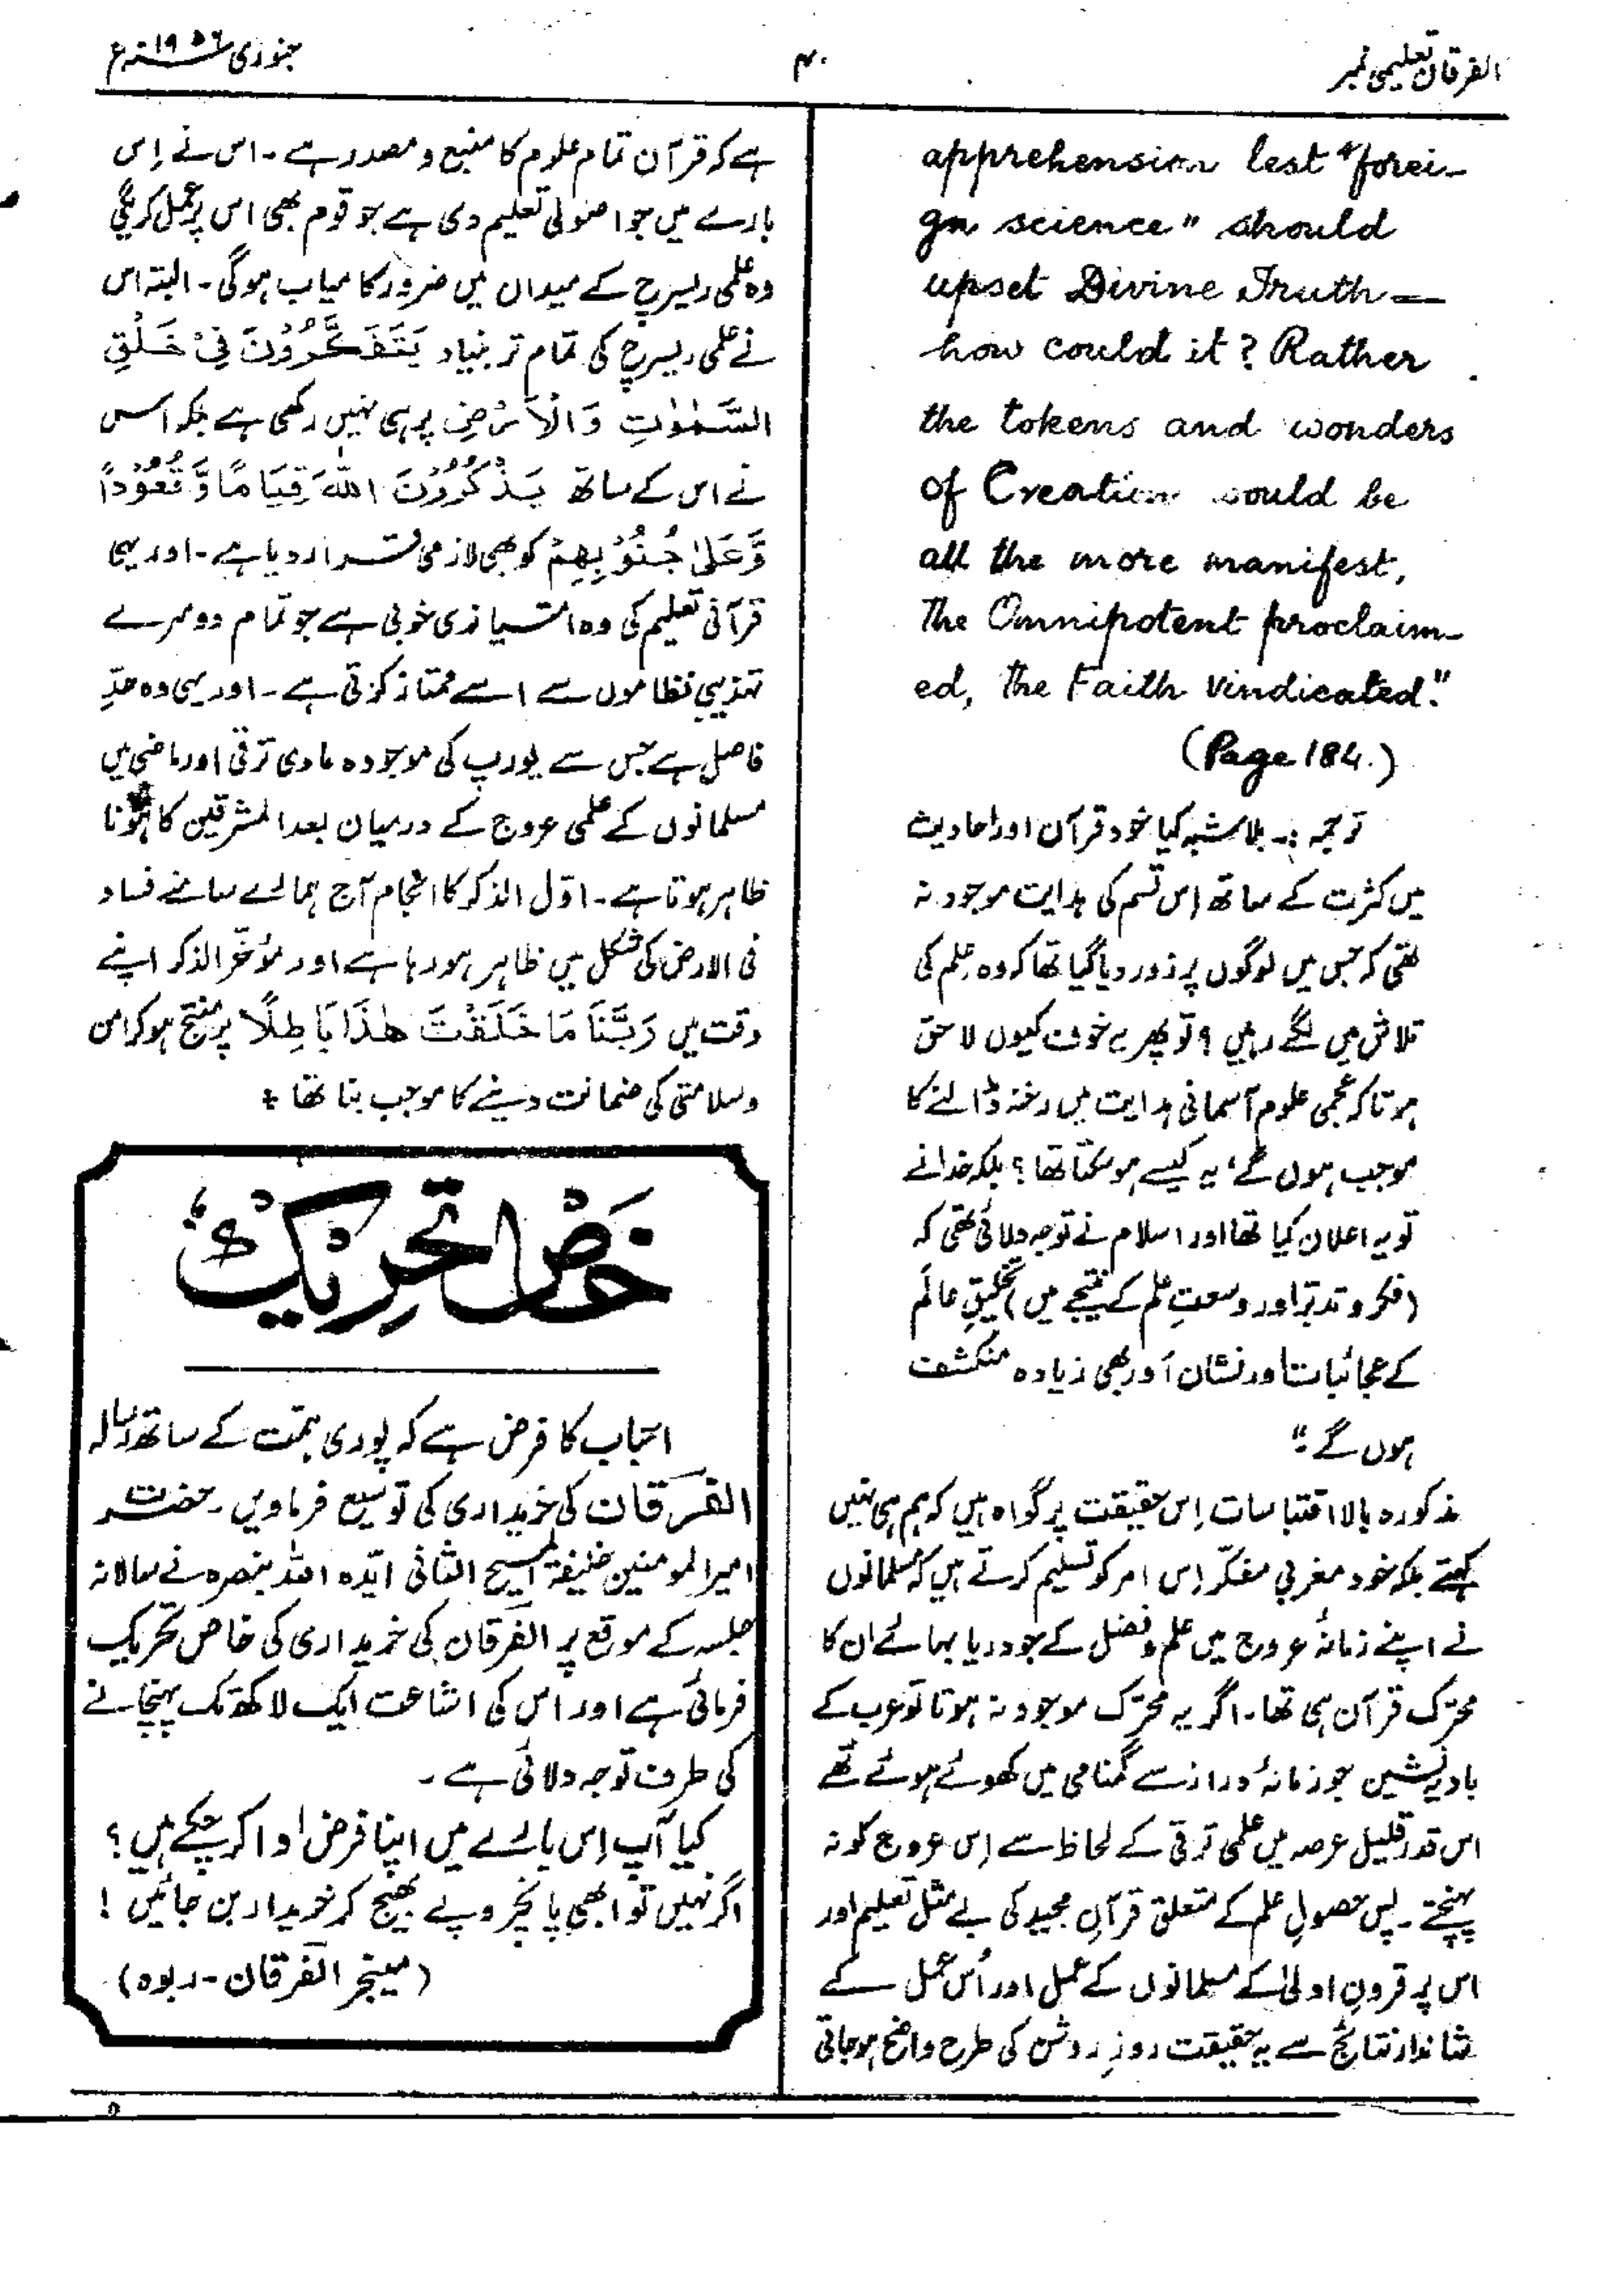 الفرقان تعلیمی نمبر
۴۰
جنوری ۱۹۵۶ء
apprehension lest "forei-
gn science" should
upset Divine Truth—
how could it? Rather
the tokens and wonders
of Creation would be
all the more manifest,
The Omnipotent proclaim-
ed, the Faith vindicated."
(Page 184.)
ترجمہ :۔ بلاشبہ کیا خود قرآن اور احادیث
میں کثرت کے ساتھ اِس قسم کی ہدایت موجود نہ
تھی کہ جس میں لوگوں پر زور دیا گیا تھا کہ وہ علم کی
تلاش میں لگے رہیں ؟ تو پھر یہ خوف کیوں لاحق
ہوتا کہ عجمی علوم آسمانی ہدایت میں رخنہ ڈالنے کا
موجب ہوں گے، یہ کیسے ہو سکتا تھا ؟ بلکہ خدا نے
تو یہ اعلان کیا تھا اور اسلام نے توجہ دلائی تھی کہ
(فکر و تدبّر اور وسعتِ علم کے نتیجے میں) تخلیقِ عالَم
کے عجائبات اور نشان اَور بھی زیادہ منکشف
ہوں گے۔"
مذکورہ بالا اقتباسات اِس حقیقت پر گواہ ہیں کہ ہم ہی نہیں
کہتے بلکہ خود مغربی مفکّر اِس امر کو تسلیم کرتے ہیں کہ مسلمانوں
نے اپنے زمانۂ عروج میں علم و فضل کے جو دریا بہائے ان کا
محرّک قرآن ہی تھا۔ اگر یہ محرّک موجود نہ ہوتا تو عرب کے
بادیہ نشین جو زمانۂ دراز سے گمنامی میں کھوئے ہوئے تھے
اس قدر قلیل عرصہ میں علمی ترقی کے لحاظ سے اِس عروج کو نہ
پہنچتے۔ پس حصولِ علم کے متعلق قرآنِ مجید کی بے مثل تعلیم اور
اس پر قرونِ اولیٰ کے مسلمانوں کے عمل اور اُس عمل کے
شاندار نتائج سے یہ حقیقت روزِ روشن کی طرح واضح ہو جاتی
ہے کہ قرآن تمام علوم کا منبع و مصدر ہے۔ اس نے اِس
بارے میں جو اصولی تعلیم دی ہے جو قوم بھی اس پر عمل کریگی
وہ علمی ریسرچ کے میدان میں ضرور کامیاب ہوگی۔ البتہ اس
نے علمی ریسرچ کی تمام تر بنیاد یَتَفَکَّرُوْنَ فِیْ خَلْقِ
السَّمٰوٰتِ وَالْاَرْضِ پر ہی نہیں رکھی ہے بلکہ اس
نے اس کے ساتھ یَذْکُرُوْنَ اللّٰہَ قِیَامًا وَّ قُعُوْدًا
وَّعَلٰی جُنُوْبِھِمْ کو بھی لازمی قرار دیا ہے۔ اور یہی
قرآنی تعلیم کی وہ امتیازی خوبی ہے جو تمام دوسرے
تہذیبی نظاموں سے اسے ممتاز کرتی ہے۔ اور یہی وہ حدِّ
فاصل ہے جس سے یورپ کی موجودہ مادی ترقی اور ماضی میں
مسلمانوں کے علمی عروج کے درمیان بعد المشرقین کا ہونا
ظاہر ہوتا ہے۔ اوّل الذکر کا انجام آج ہمارے سامنے فساد
فی الارض کی شکل میں ظاہر ہو رہا ہے اور مؤخّر الذکر اپنے
وقت میں رَبَّنَا مَا خَلَقْتَ ھٰذَا بَاطِلًا پر منتج ہو کر امن
و سلامتی کی ضمانت دینے کا موجب بنا تھا ÷
خاص تحریک
احباب کا فرض ہے کہ پوری ہمّت کے ساتھ رسالہ
الفرقان کی خریداری کی توسیع فرماویں۔ حضرت
امیر المومنین خلیفۃ المسیح الثانی ایّدہ اللہ بنصرہ نے سالانہ
جلسہ کے موقع پر الفرقان کی خریداری کی خاص تحریک
فرمائی ہے اور اس کی اشاعت ایک لاکھ تک پہنچانے
کی طرف توجہ دلائی ہے۔
کیا آپ اِس بارے میں اپنا فرض ادا کر چکے ہیں ؟
اگر نہیں تو ابھی پانچ روپے بھیج کر خریدار بن جائیں !
(مینجر الفرقان۔ ربوہ)